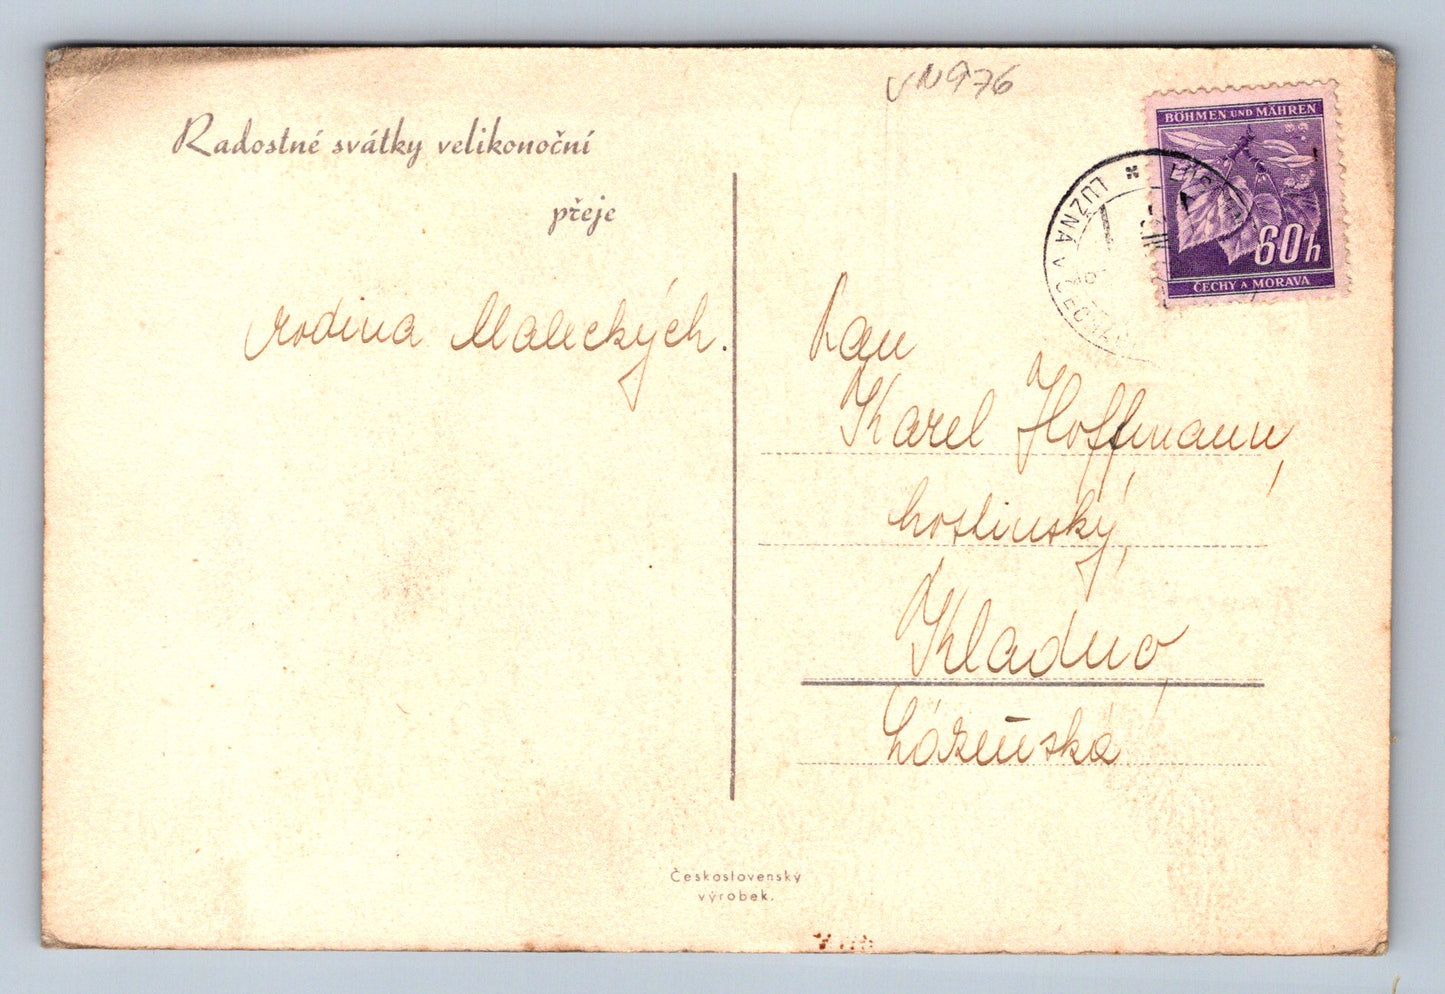 VN976
Radostné svátky velikonoční
přeje
rodina Maleckých.
BÖHMEN UND MÄHREN
60h
ČECHY A MORAVA
LUŽNÁ V ČECHÁCH
Pan
Karel Hoffmann,
hostinský,
Kladno,
Lázeňská
Československý
výrobek.